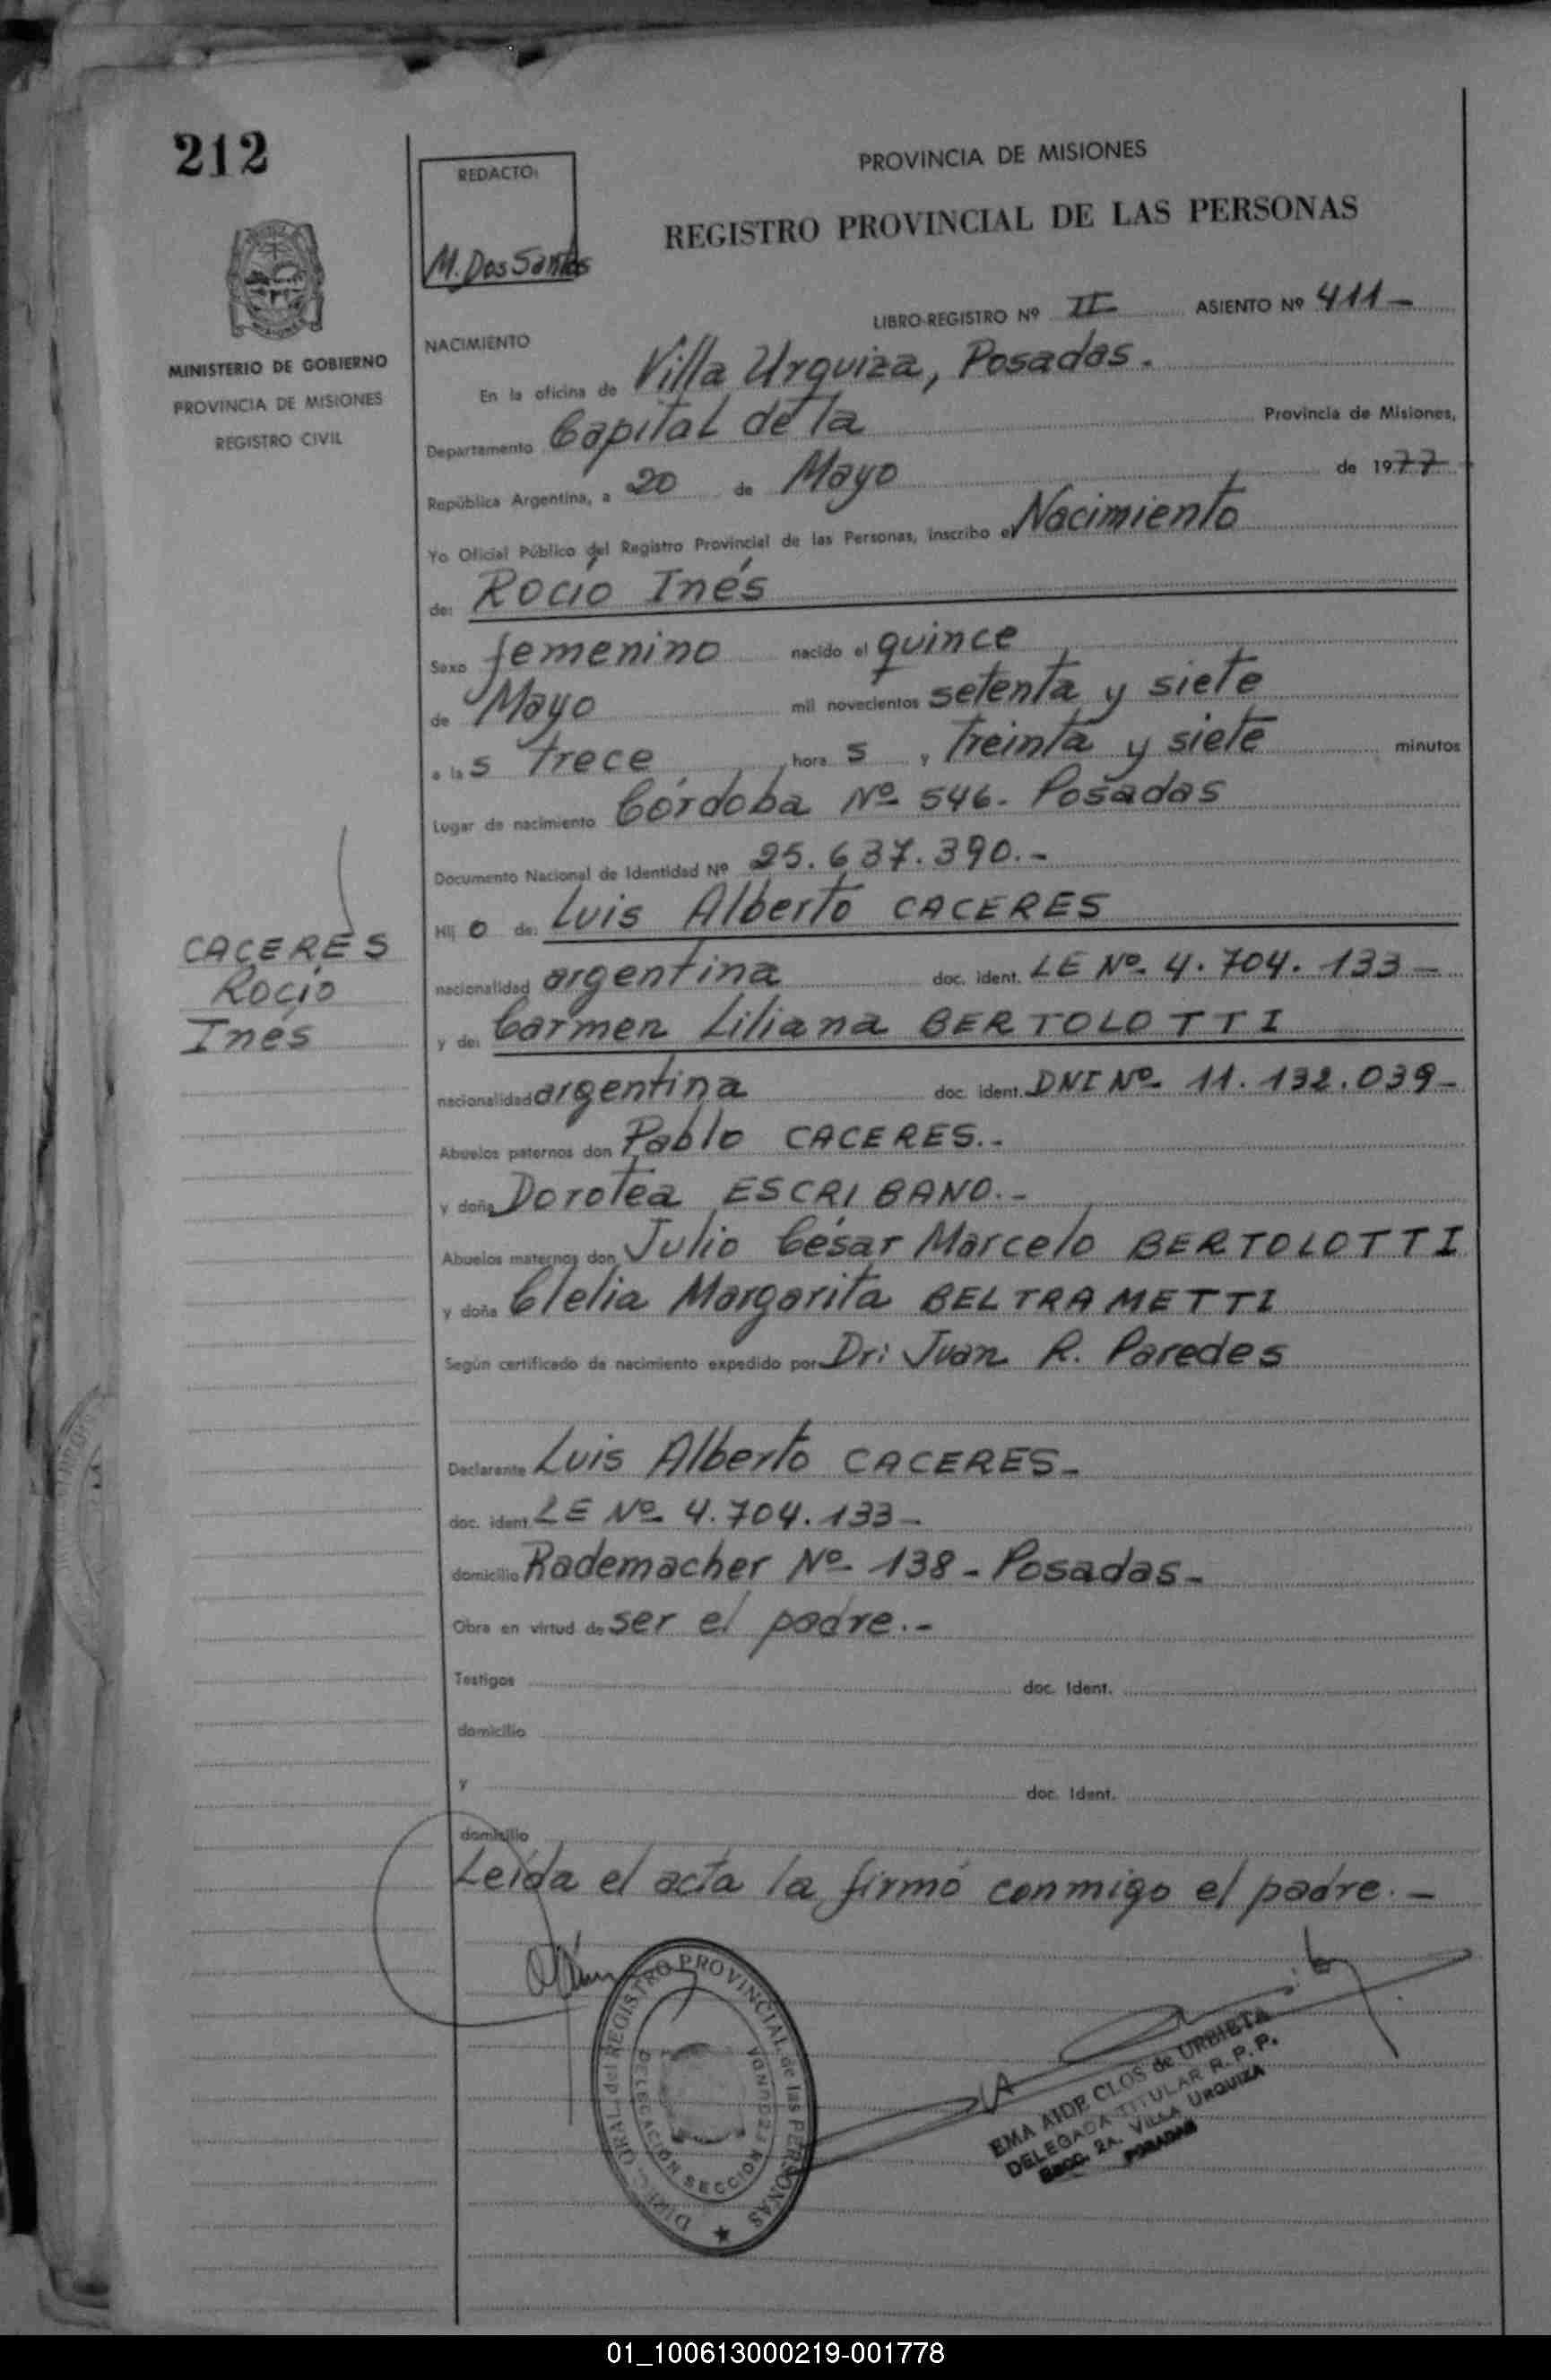 212
REDACTO:
M. Dos Santos
PROVINCIA DE MISIONES
REGISTRO PROVINCIAL DE LAS PERSONAS
MINISTERIO DE GOBIERNO
PROVINCIA DE MISIONES
REGISTRO CIVIL
LIBRO-REGISTRO Nº II ASIENTO Nº 411-
NACIMIENTO
En la oficina de Villa Urquiza, Posadas.
Departamento Capital de la Provincia de Misiones,
República Argentina, a 20 de Mayo de 1977
Yo Oficial Público del Registro Provincial de las Personas, inscribo el Nacimiento
de: Rocío Inés
Sexo femenino nacido el quince
de Mayo mil novecientos setenta y siete
a las trece horas y treinta y siete minutos
Lugar de nacimiento Córdoba Nº 546. Posadas
Documento Nacional de Identidad Nº 25.637.390.-
Hijo de: Luis Alberto CACERES
nacionalidad argentina doc. ident. LE Nº 4.704.133-
y de: Carmen Liliana BERTOLOTTI
nacionalidad argentina doc. ident. DNI Nº 11.132.039-
CACERES
Rocío
Inés
Abuelos paternos don Pablo CACERES.-
y doña Dorotea ESCRIBANO.-
Abuelos maternos don Julio César Marcelo BERTOLOTTI
y doña Clelia Margarita BELTRAMETTI
Según certificado de nacimiento expedido por Dr: Juan R. Paredes
Declarante Luis Alberto CACERES-
doc. ident. LE Nº 4.704.133-
domicilio Rademacher Nº 138-Posadas-
Obra en virtud de ser el padre.-
Testigos doc. Ident.
domicilio
y doc. Ident.
domicilio
Leída el acta la firmó conmigo el padre.-
DIREC. GRAL. del REGISTRO PROVINCIAL de las PERSONAS
DELEGACIÓN SECCION SEGUNDA
EMA AIDE CLOS de URBIETA
DELEGADA TITULAR R. P. P.
Secc. 2A. VILLA URQUIZA
POSADAS
01_100613000219-001778